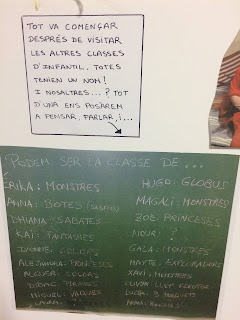 TOT VA COMENÇAR
DESPRÉS DE VISITAR
LES ALTRES CLASSES
D'INFANTIL. TOTES
TENIEN UN NOM!
I NOSALTRES...? TOT
D'UNA ENS POSÀREM
A PENSAR, PARLAR, I...
PODEM SER LA CLASSE DE...
ERIKA: MONSTRES
ANNA: BOTES
DHIANA: SABATES
KAI: FANTASMES
IVONNE: COLORS
ALEJANDRA: PRINCESES
COLORS
DÍDAC: PIRATES
MIQUEL: VAQUES
LAURA:
HUGO: GLOBUS
MAGALI: MONSTRES
ZOE: PRINCESES
NOUR: ?
GALA: MONSTRES
MAYTE: EXPLORADORS
XAVI: MONSTRES
LLOP FEROTGE
LUCIA: 3 PORQUETS